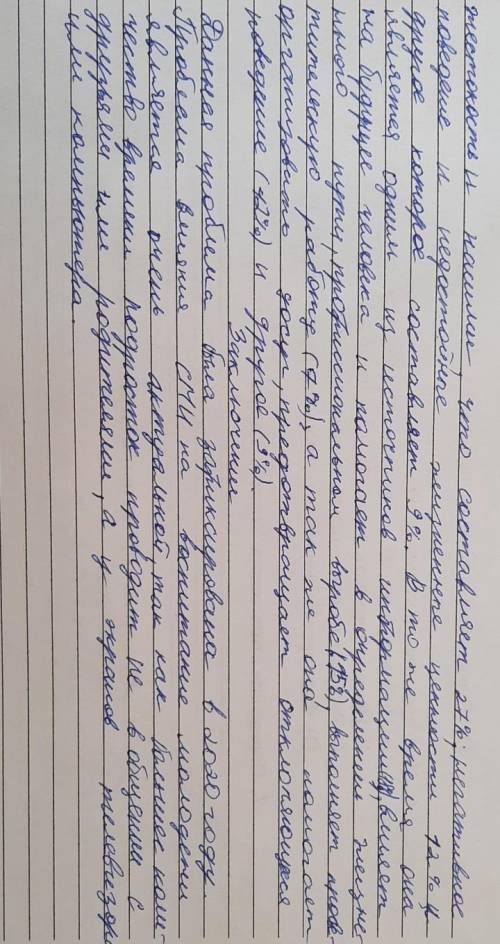 жестокость и насилие что составляет 27%; негативное
поведение и недостойные жизненные ценности 12% и
другое которое составляет 9%. В то же время она
является одним из источников информации влияет
на будущее человека и помогает в определении жизне-
нного пути, профессиональном выборе (15%), выполняет прос-
тительскую работу (7%), а так же она помогает
организовать досуг, предотвращает отклоняющееся
поведение (12%) и другое (9%).
Заключение
Данная проблема была зафиксирована в 2020 году.
Проблема влияния СМИ на воспитание молодежи
является очень актуальной, так как большее коли-
чество времени подросток проводит не в общении с
друзьями или родителями, а у экранов телевизора
или компьютера.